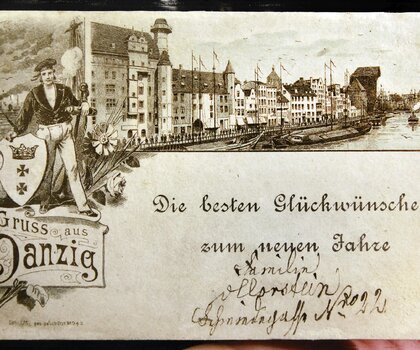 Gruss aus
Danzig
Die besten Glückwünsche
zum neuen Jahre
Familie
No 22